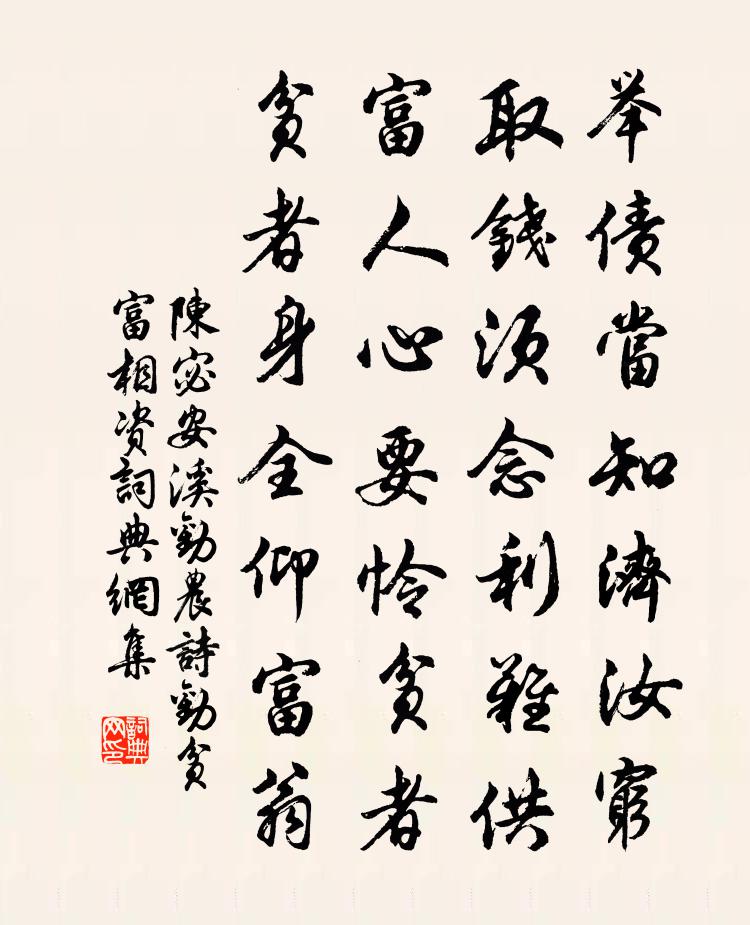 举债當知濟汝窮
取錢须念利難供
富人心要怜貧者
貧者身全仰富翁
陳宓安溪勸農詩勸貧
富相资詞典網集
詞典网印